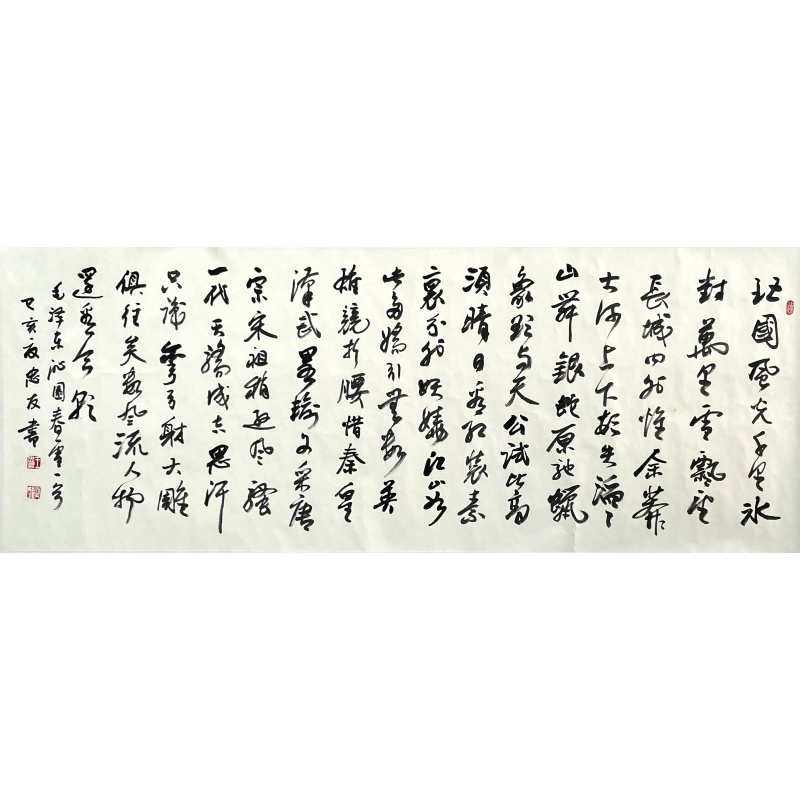 北國風光千里冰
封萬里雪飄望
長城内外惟余莽〻
大河上下頓失滔〻
山舞銀蛇原馳蠟
象欲与天公試比高
須晴日看紅裝素
裹分外妖嬈江山如
此多嬌引無數英
雄競折腰惜秦皇
漢武略輸文采唐
宗宋祖稍遜風騷
一代天驕成吉思汗
只識彎弓射大雕
俱往矣數風流人物
還看今朝
毛澤東沁園春雪一首
己亥夏忠友書